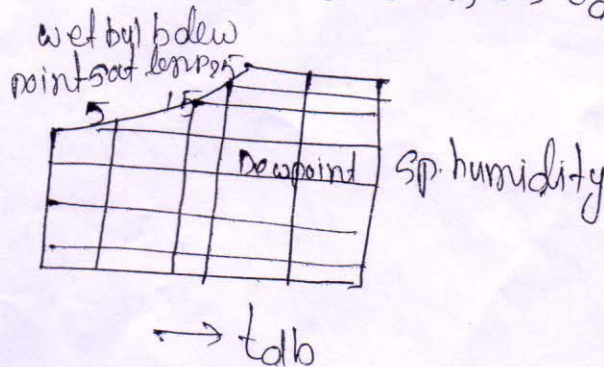 wet bulb dew
point sat temp 25
5 15
Dewpoint
Sp. humidity
→ tdb